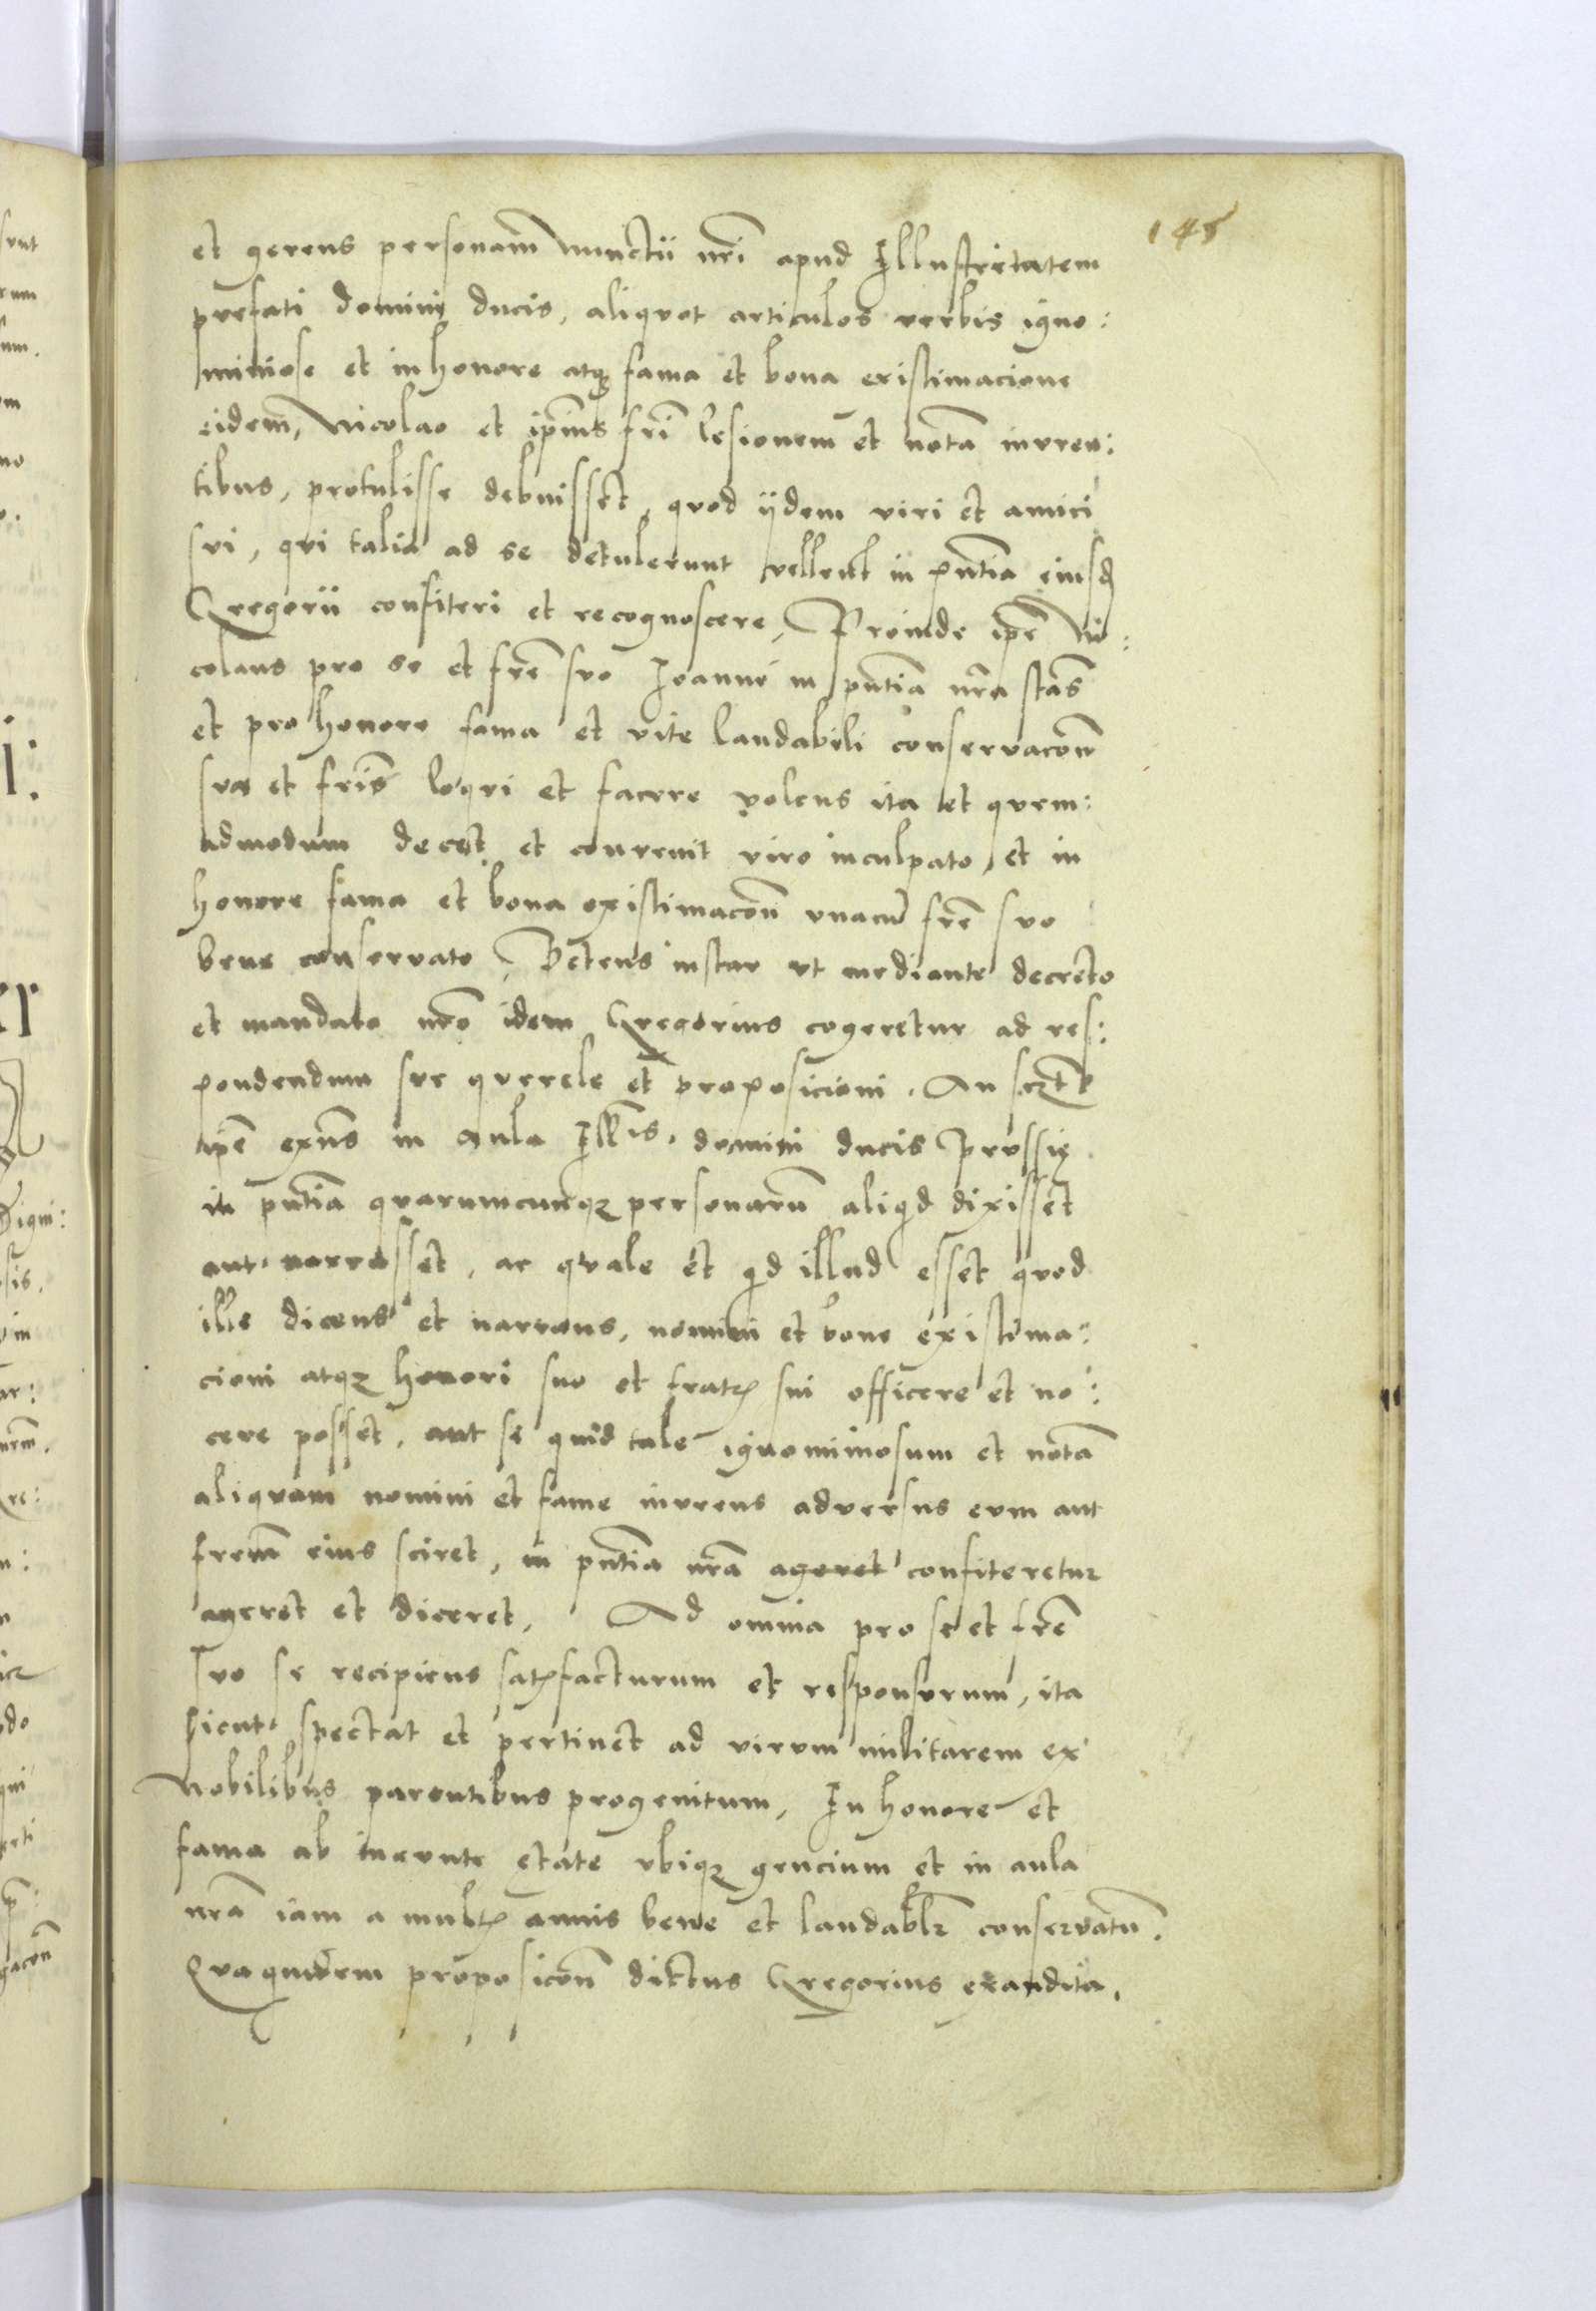 145
et gerens personam Nunctii nrī apud Illustritatem
prefati domini ducis, aliquot articulos verbis igno:
miniose et in honore atq₃ fama et bona existimacione
eidem, Nicolao et ipīus frī lesionem et notā inuren:
tibus, protulisse debuisset, quod ijdem viri et amici
sui, qui talia ad se detulerunt vellent in pn̄tia eiusd
Gregorii confiteri et recognoscere, Proinde ipē Ni:
colaus pro se et frē suo Ioanne in pn̄tia nrā stās
et pro honore fama et vite laudabili conservacōn
sua et frīs loqui et facere volens ita et quem:
admodum decet et convenit viro inculpato, et in
honore fama et bona existimacōn unacū frē suo
bene conservato, Petens instar ut mediante decreto
et mandato nrō idem Gregorius cogeretur ad res:
pondendum sue querele et proposicioni. An
ipē exn̄s in aula Illīs. domini ducis Prussię
in pn̄tia quarumcunq₃ personarū aliqd dixisset
aut narrasset, ac quale et qd illud esset quod
ille dicens et narrans, nomini et bone existima:
cioni atq₃ honori suo et fratr̄ sui officere et no:
cere posset, aut se quid tale ignominiosum et notā
aliquam nomini et fame inurens adversus eum aut
frem̄ eius sciret, in pn̄tia nrā ageret confiteretur
ageret et diceret, Ad omnia pro se et frē
suo se recipiens satisfacturum et responsurum, ita
sicut spectat et pertinet ad virum militarem ex
Nobilibus parentibus progenitum, In honore et
fama ab ineunte etate ubiq₃ gencium et in aula
nrā iam a multis annis bene et laudablr̄ conservatū.
Qua quidem proposicōn dictus Gregorius exaudita,